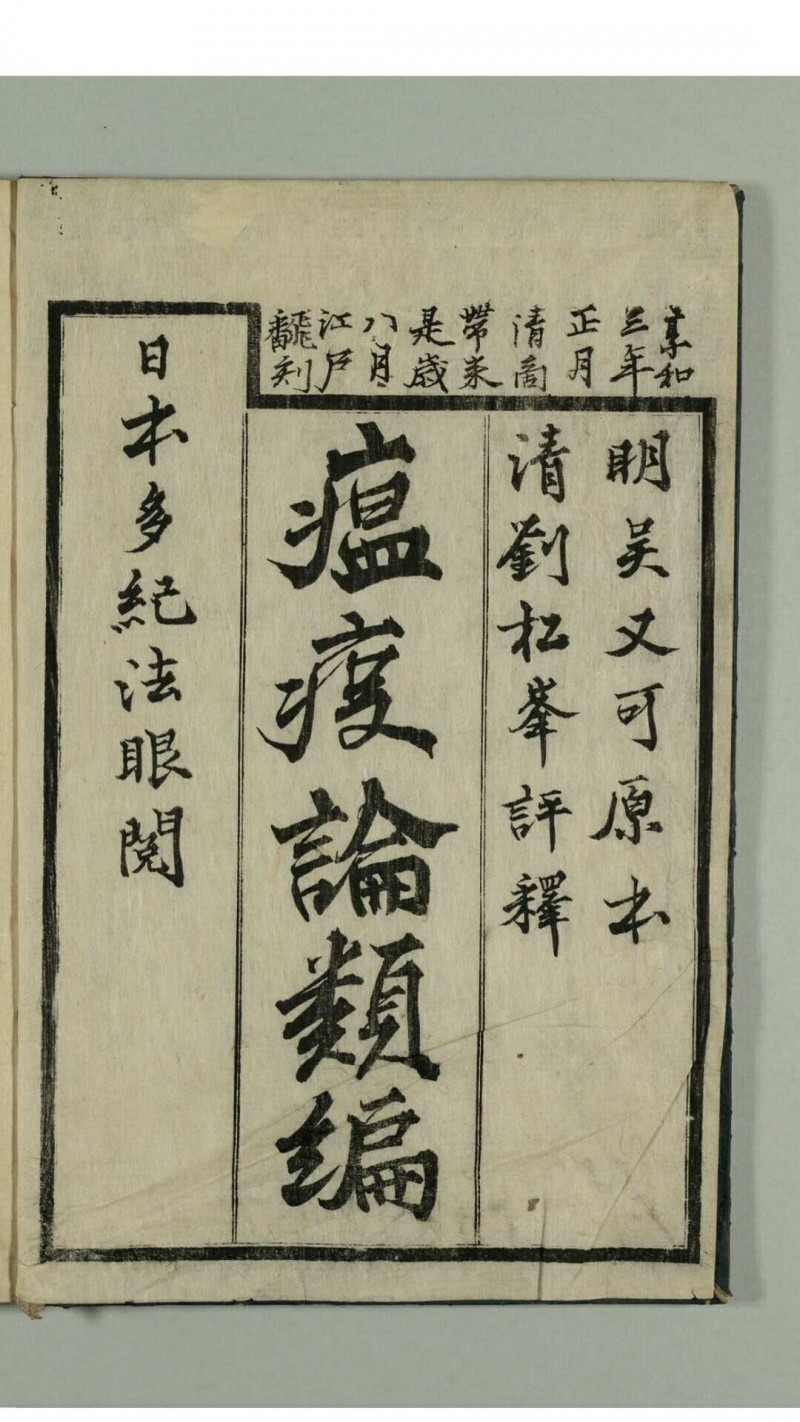 享和
三年
正月
清商
帶来
是歳
八月
江戸
飜刻
明吴又可原本
清劉松峯評釋
瘟疫論類編
日本多紀法眼閱